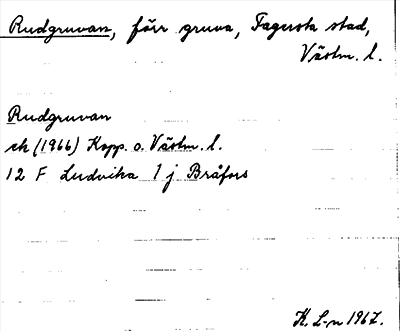 Rudgruvan, förr gruva, Fagersta stad,
Västm. l.
Rudgruvan
ek (1966) Kopp. o. Västm. l.
12 F Ludvika 1 j Bråfors
K. L-n 1967.